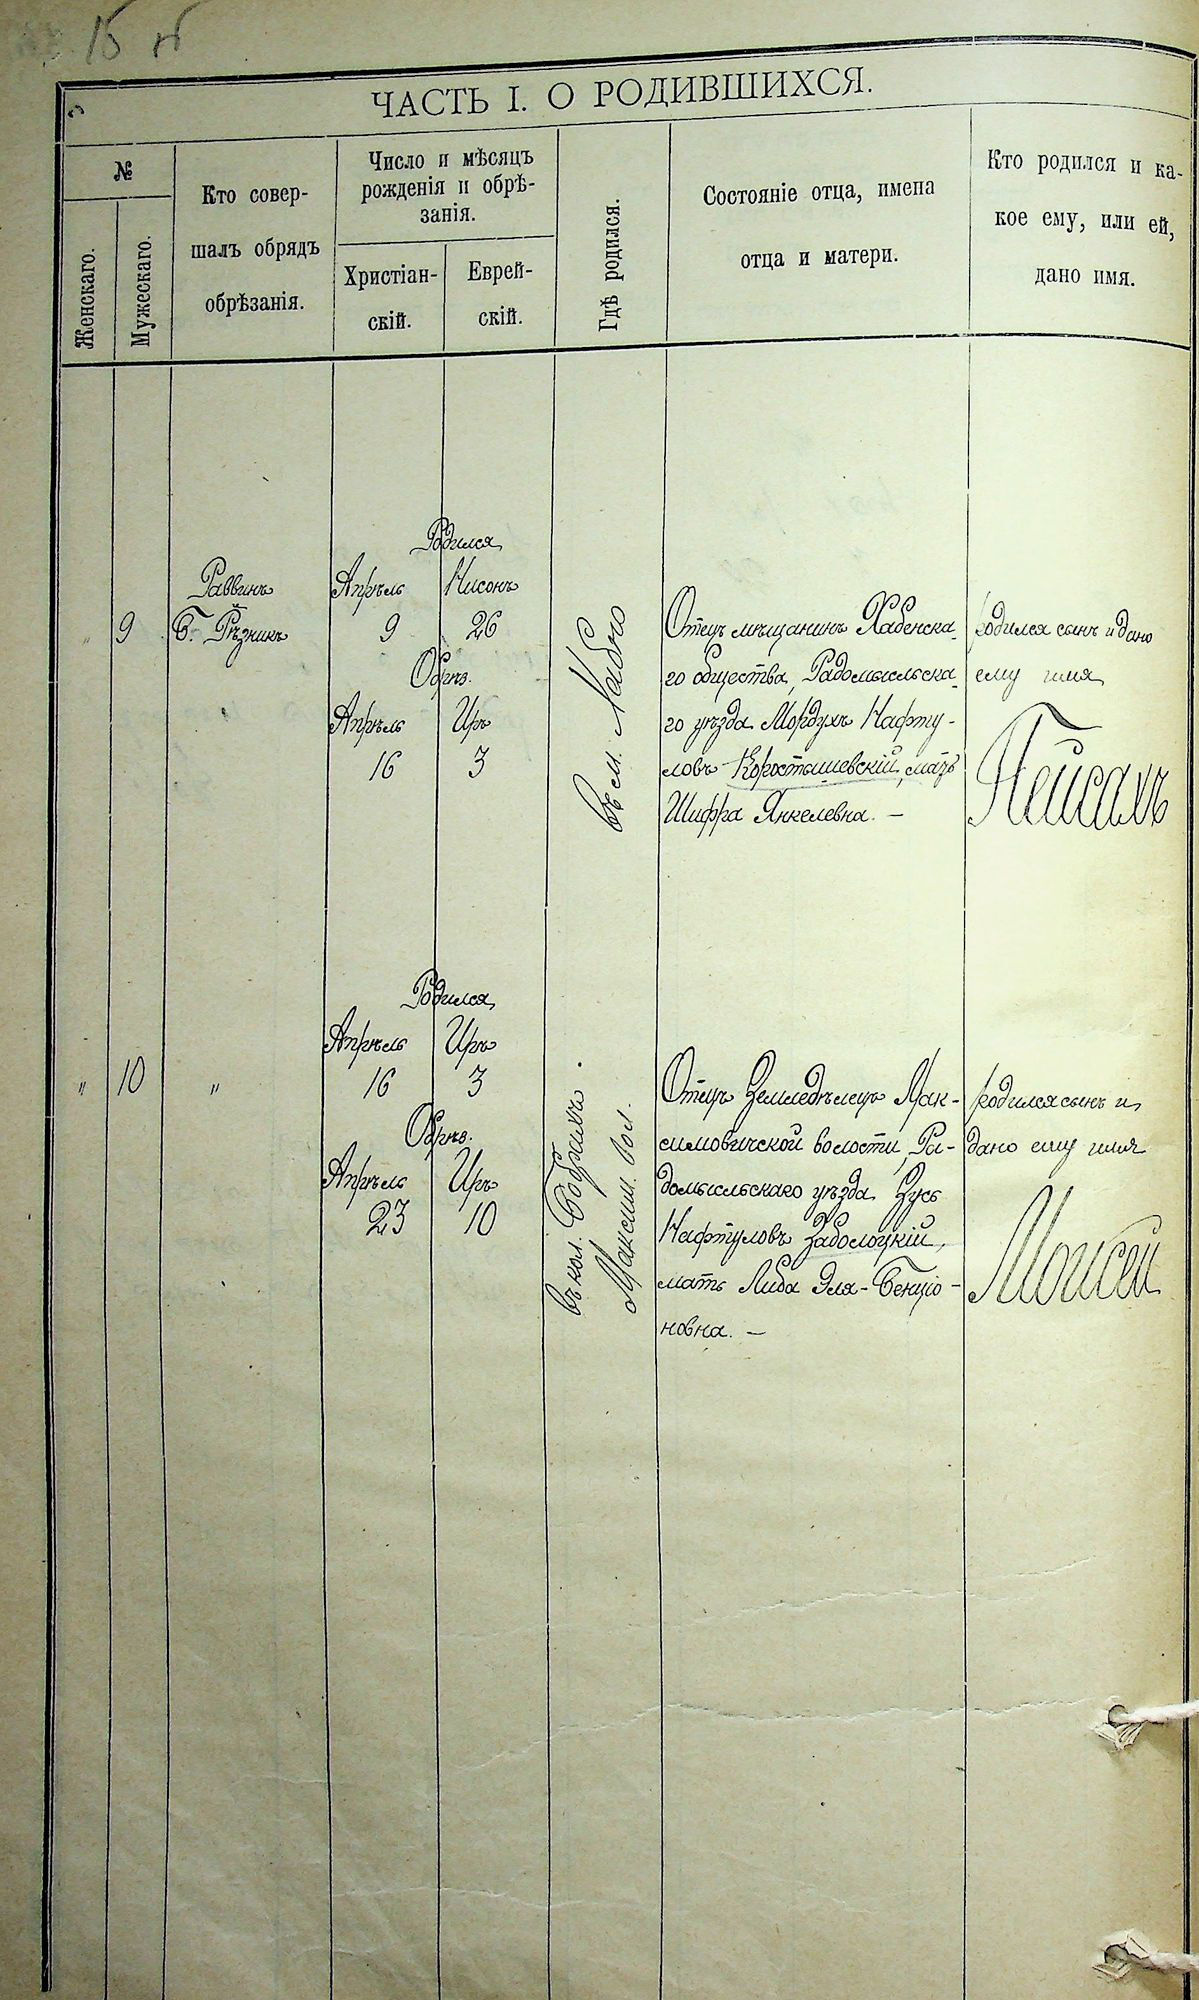 15
ЧАСТЬ I. О РОДИВШИХСЯ.
№
Женскаго.
Мужескаго.
Кто совер-
шалъ обрядъ
обрѣзанія.
Число и мѣсяцъ
рожденія и обрѣ-
занія.
Христіан-
скій.
Еврей-
скій.
Гдѣ родился.
Состояніе отца, имена
отца и матери.
Кто родился и ка-
кое ему, или ей,
дано имя.
" 9
Раввинъ
Б. Рѣзникъ
Родился
Апрѣль Нисонъ
9 26
Обрѣз.
Апрѣль Иръ
16 3
въ м.
Отецъ мѣщанинъ Хабенска-
го общества, Радомысльска-
го уѣзда Мордухъ Нафту-
ловъ Коростышевскій, мать
Шифра Янкелевна. —
родился сынъ и дано
ему имя
Пейсахъ
" 10
"
Родился
Апрѣль Иръ
16 3
Обрѣз.
Апрѣль Иръ
23 10
въ кол.
Максим. вол.
Отецъ Земледѣлецъ Мак-
симовичской волости, Ра-
домысльскаго уѣзда Зусь
Нафтуловъ Заболоцкій,
мать Либа Эля-Бенціо-
новна. —
родился сынъ и
дано ему имя
Моисей